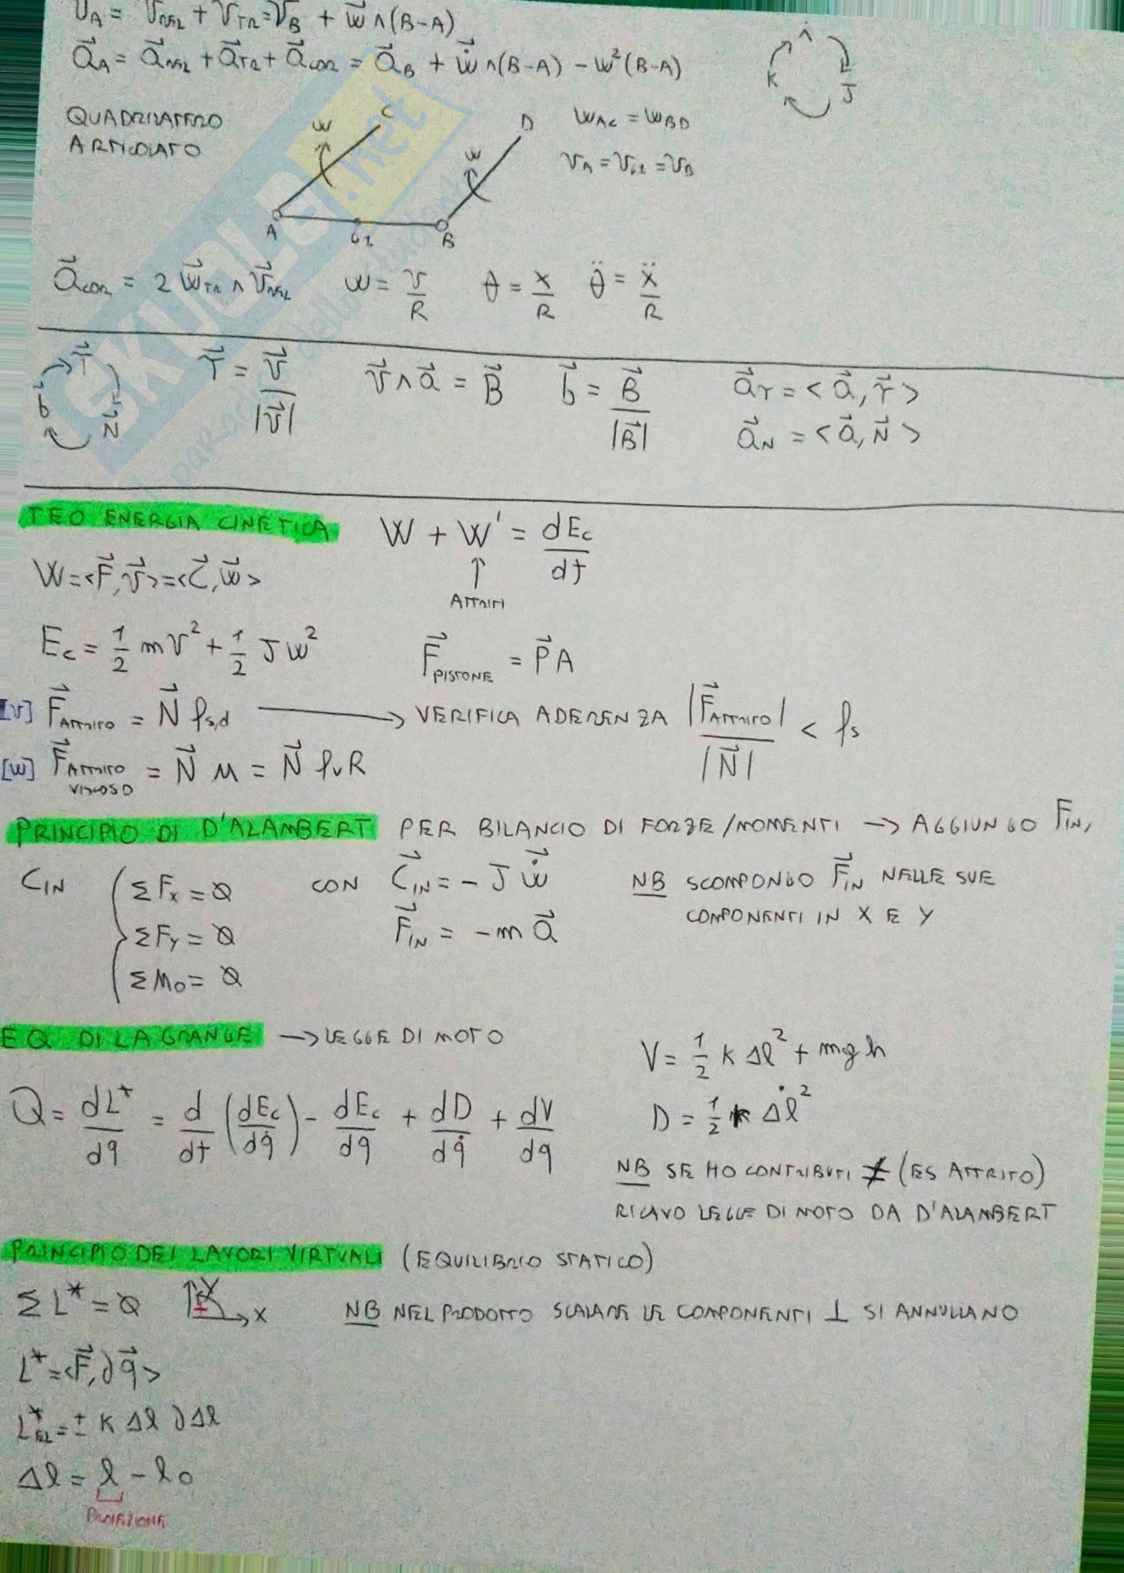 v⃗A = v⃗REL + v⃗TR = v⃗B + w⃗ ∧ (B-A)
a⃗A = a⃗REL + a⃗TR + a⃗COR = a⃗B + ẇ⃗ ∧ (B-A) - w²(B-A)
i
K J
QUADRILATERO
ARTICOLATO
C
w
D
w
A
G1
B
wAC = wBD
vA = vG1 = vB
a⃗COR = 2 w⃗TR ∧ v⃗REL w = v/R θ = x/R θ̈ = ẍ/R
T⃗
b N⃗
T⃗ = v⃗/|v⃗| v⃗ ∧ a⃗ = B⃗ b⃗ = B⃗/|B⃗| a⃗T = <a⃗, T⃗>
a⃗N = <a⃗, N⃗>
TEO ENERGIA CINETICA W + W' = dEc/dt
ATTRITI
W = <F⃗, v⃗> = <C⃗, w⃗>
Ec = 1/2 mv² + 1/2 Jw² F⃗PISTONE = P⃗A
[v] F⃗ATTRITO = N⃗ fs,d → VERIFICA ADERENZA |F⃗ATTRITO|/|N⃗| < fs
[w] F⃗ATTRITO VISCOSO = N⃗ M = N⃗ fvR
PRINCIPIO DI D'ALAMBERT PER BILANCIO DI FORZE/MOMENTI → AGGIUNGO FIN,
CIN { ΣFx = 0 CON C⃗IN = - J ẇ⃗ NB SCOMPONGO F⃗IN NELLE SUE
ΣFy = 0 F⃗IN = -m a⃗ COMPONENTI IN X E Y
ΣMO = 0
EQ. DI LAGRANGE → LEGGE DI MOTO
V = 1/2 K Δl² + mgh
Q = dL*/dq = d/dt (dEc/dq̇) - dEc/dq + dD/dq̇ + dV/dq
D = 1/2 r Δl̇²
NB SE HO CONTRIBUTI ≠ (ES ATTRITO)
RICAVO LEGGE DI MOTO DA D'ALAMBERT
PRINCIPIO DEI LAVORI VIRTUALI (EQUILIBRIO STATICO)
ΣL* = 0 Y X NB NEL PRODOTTO SCALARE LE COMPONENTI ⊥ SI ANNULLANO
L* = <F⃗, ∂q⃗>
L*EL = ± K Δl ∂Δl
Δl = l - l0
PROIEZIONE
SKUOLA.net